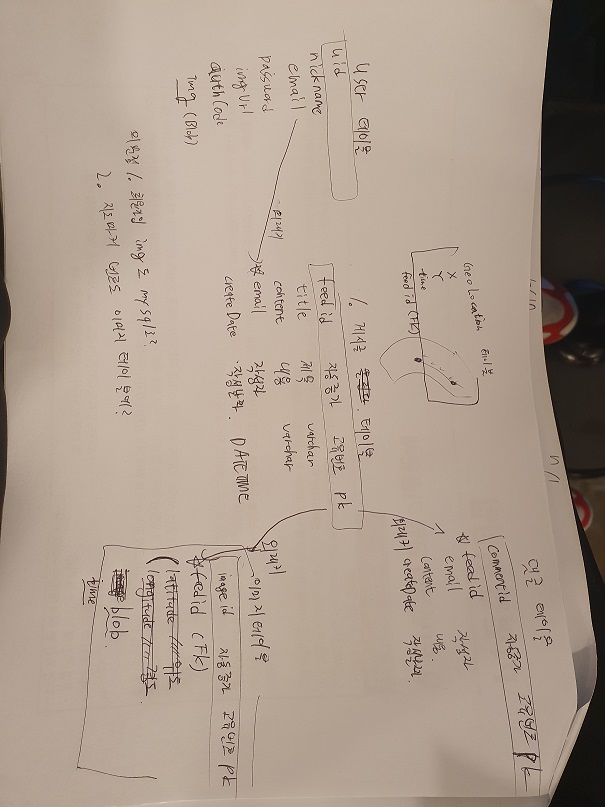 User 테이블
uid
nickname
email
password
imgUrl
authCode
img (Blob)
의문점 1. 회원가입 img도 mysql로?
2. 지도좌표 이미지 테이블에?
Geo Location 테이블
X
Y
time
feed id (FK)
외래키
1. 게시글 테이블
feed id 자동증가 고유번호 PK
title 제목 varchar
content 내용 varchar
email 작성자
create Date 작성날짜. DATETIME
댓글 테이블
Comment id 자동증가 고유번호 PK
feed id
email 작성자
content 내용.
외래키 createDate 작성날짜.
외래키
이미지 테이블
image id 자동증가 고유번호 PK
feed id (FK)
latitude /// 위도
longitude /// 경도
blob.
time